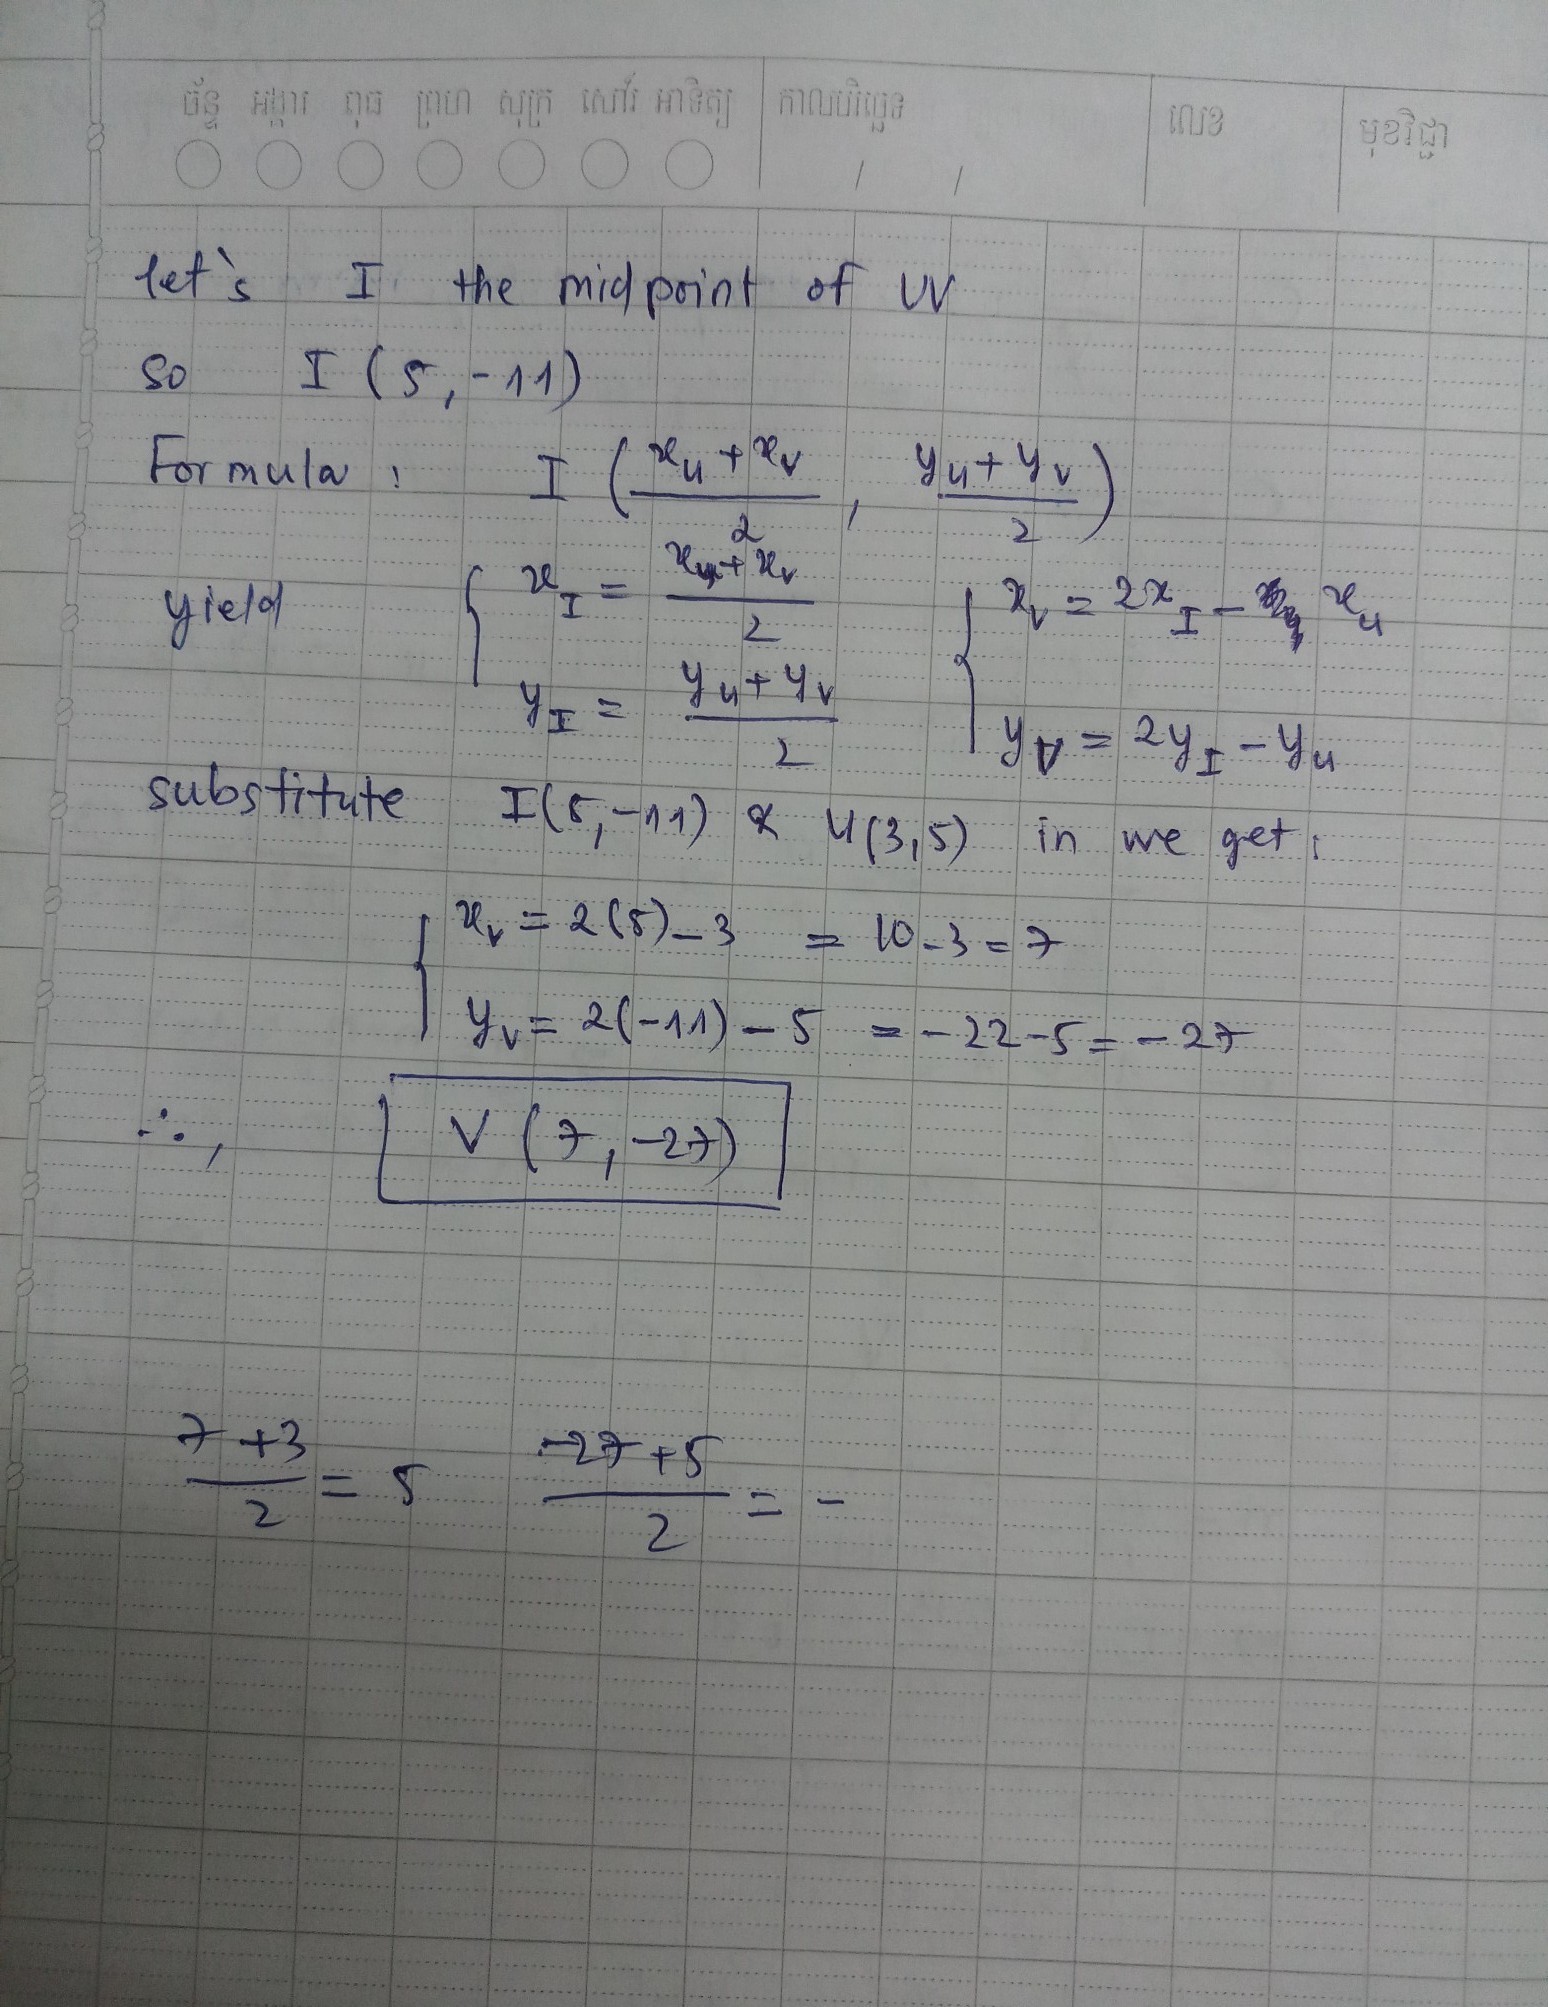 ច័ន្ទ អង្គារ ពុធ ព្រហ សុក្រ សៅរ៍ អាទិត្យ កាលបរិច្ឆេទ លេខ មុខវិជ្ជា
/ /
let's I the midpoint of UV
so I (5, -11)
Formula : I ( (x_u + x_v)/2 , (y_u + y_v)/2 )
yield { x_I = (x_u + x_v)/2 { x_v = 2x_I - x_u
y_I = (y_u + y_v)/2 y_v = 2y_I - y_u
substitute I(5, -11) & U(3,5) in we get :
{ x_v = 2(5) - 3 = 10 - 3 = 7
y_v = 2(-11) - 5 = -22 - 5 = -27
∴, V (7, -27)
(7 + 3)/2 = 5 (-27 + 5)/2 = -